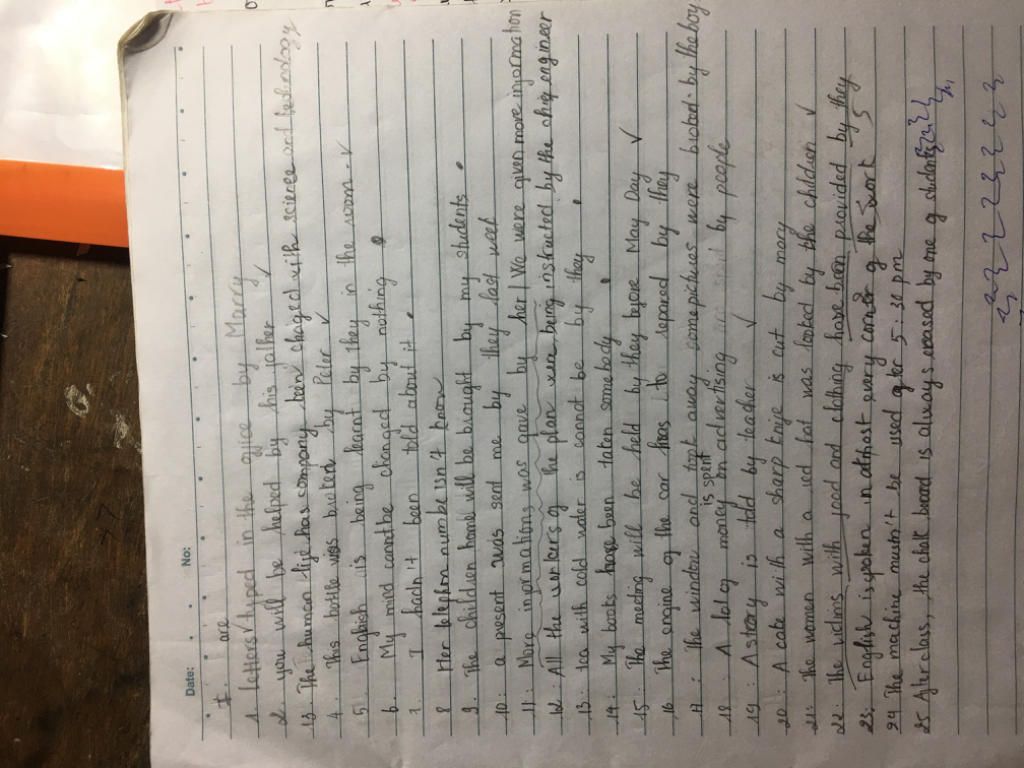 Date: No:
I. are
1. letters typed in the office by Marry
2. you will be helped by his father ✓
13. The human life has company been chaged with the science and technology
4. This bottle was broked by Peter ✓
5. English is being by they in the room ✓
6. My mind cannot be changed by nothing
7. I hadn't been told about it
8 Her telephon number isn't
9. The children home will be brought by my students
10: a present was send me by they last week
11: More informations was gave by her / We were given more information
12: All the workers of the plan were being instructed by the chief engineer
13: tea with cold water is cannot be by they
14: My books have been taken somebody
15: The meeting will be held by they before May Day ✓
16 The engine of the car has to repared by they
17: The window and away some pictures were by the boy
is spent
18: A lot of money on advertising by people
19: A story is told by teacher ✓
20: A cake with a sharp knife is cut by mary
21: The women with a red hat was looked by the children ✓
22: The victims with food and clothing have been provided by they
23: English is spoken in almost every corner of the
24 The machine mustn't be used after 5:30 pm
25 After class, the chalk board is always erased by one of students